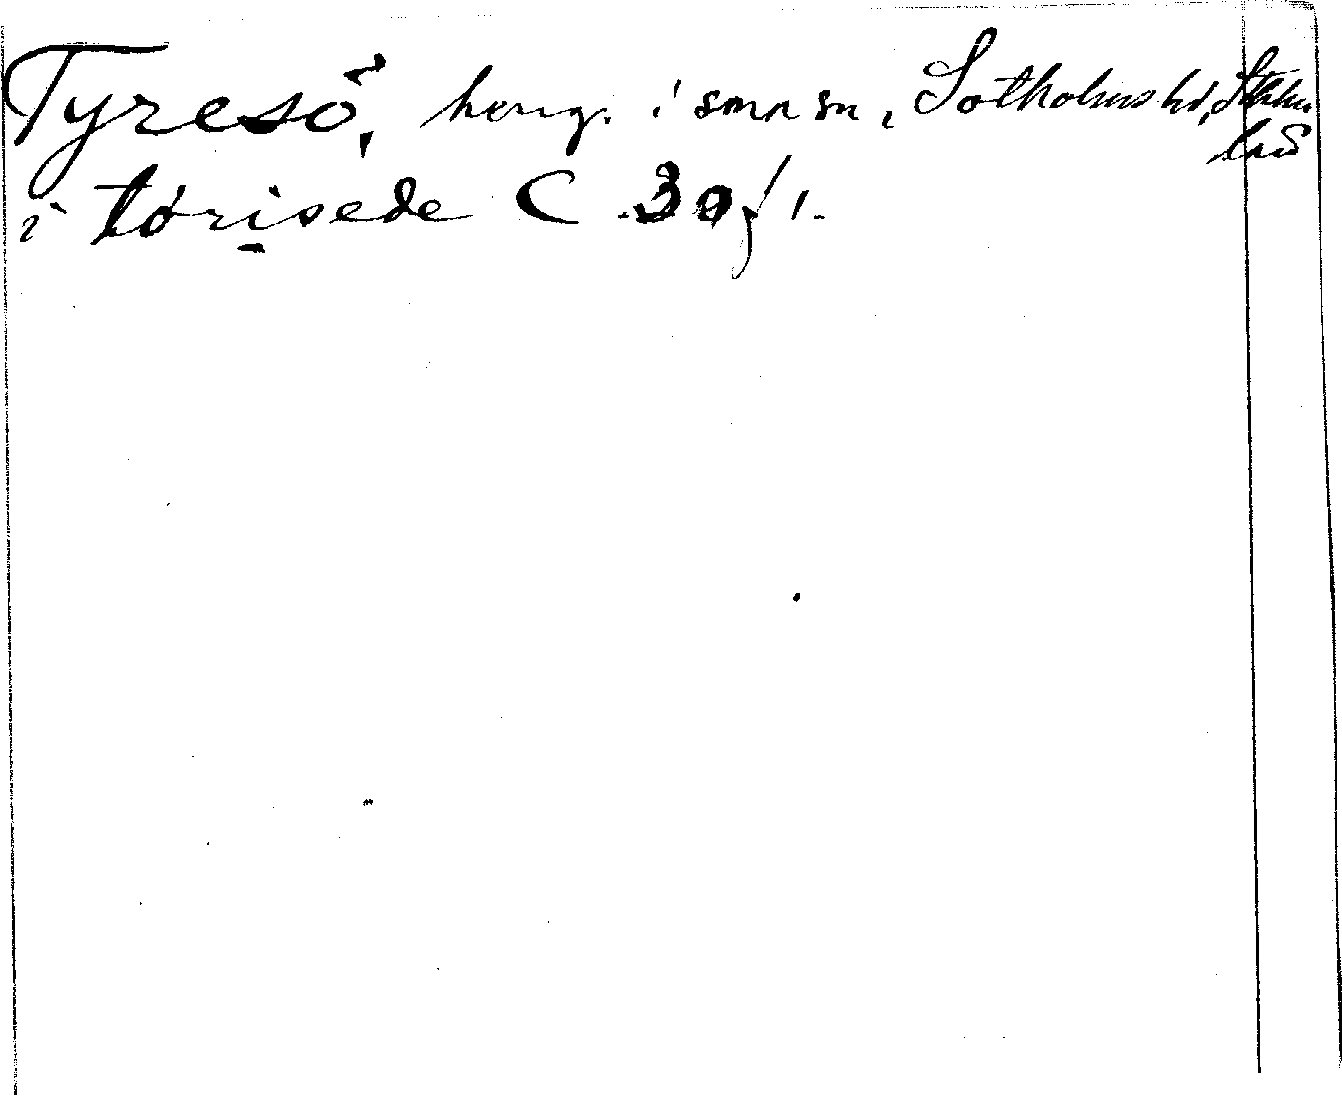 Tyresö, herrg. i smn sn, Sotholms hd, Sthlms
län
i törisede C 30/1.